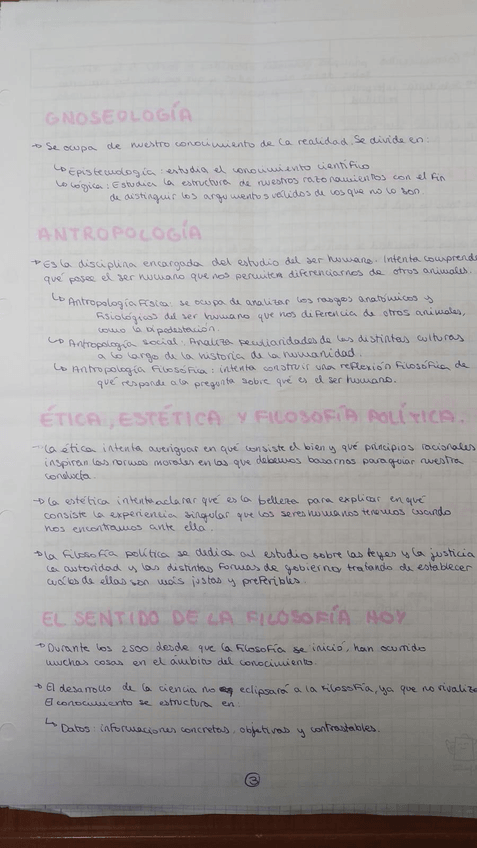 GNOSEOLOGÍA
→ Se ocupa de nuestro conocimiento de la realidad. Se divide en:
↳ Epistemología: estudia el conocimiento científico
↳ Lógica: Estudia la estructura de nuestros razonamientos con el fin
de distinguir los argumentos válidos de los que no lo son.
ANTROPOLOGÍA
→ Es la disciplina encargada del estudio del ser humano. Intenta comprende
qué posee el ser humano que nos permiten diferenciarnos de otros animales.
↳ Antropología física: se ocupa de analizar los rasgos anatómicos y
fisiológicos del ser humano que nos diferencia de otros animales,
como la bipedestación.
↳ Antropología social: Analiza peculiaridades de las distintas culturas
a lo largo de la historia de la humanidad.
↳ Antropología Filosófica: intenta construir una reflexión filosófica de
qué responde a la pregunta sobre qué es el ser humano.
ÉTICA, ESTÉTICA Y FILOSOFÍA POLÍTICA.
La ética intenta averiguar en qué consiste el bien y qué principios racionales
inspiran las normas morales en las que debemos basarnos para guiar nuestra
conducta.
→ La estética intenta aclarar qué es la belleza para explicar en qué
consiste la experiencia singular que los seres humanos tenemos cuando
nos encontramos ante ella.
→ La Filosofía política se dedica al estudio sobre las leyes y la justicia
la autoridad y las distintas formas de gobierno, tratando de establecer
cuáles de ellas son más justas y preferibles.
EL SENTIDO DE LA FILOSOFÍA HOY
→ Durante los 2500 desde que la Filosofía se inició, han ocurrido
muchas cosas en el ámbito del conocimiento.
→ El desarrollo de la ciencia no eclipsará a la Filosofía, ya que no rivaliza
El conocimiento se estructura en
↳ Datos: informaciones concretas, objetivas y contrastables.
3